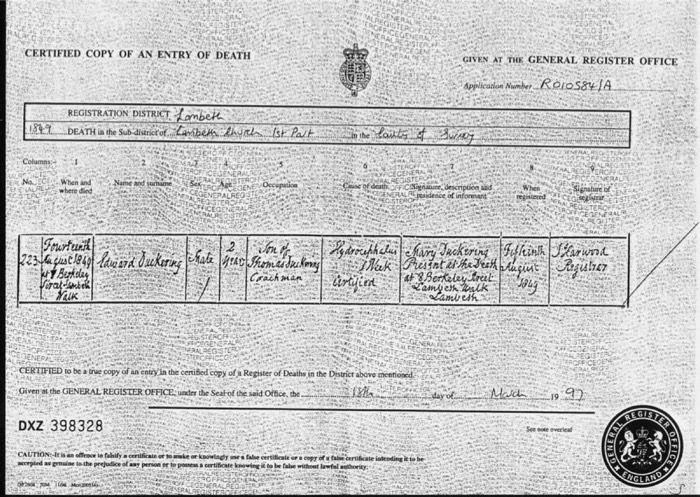 CERTIFIED COPY OF AN ENTRY OF DEATH
GIVEN AT THE GENERAL REGISTER OFFICE
Application Number R010584/A
REGISTRATION DISTRICT Lambeth
1849 DEATH in the Sub-district of Lambeth Church 1st Part in the County of Surrey
Columns:- 1 2 3 4 5 6 7 8 9
No. When and where died Name and surname Sex Age Occupation Cause of death Signature, description and residence of informant When registered Signature of registrar
Fourteenth 2 Son of Hydrocephalus Mary Duckering Fifteenth J Harwood
223 August 1849 Edward Duckering Male years Thomas Duckering 1 Week Present at the Death August Registrar
at 8 Berkeley Coachman Certified at 8 Berkeley Street 1849
Street Lambeth Lambeth Walk
Walk Lambeth
CERTIFIED to be a true copy of an entry in the certified copy of a Register of Deaths in the District above mentioned.
Given at the GENERAL REGISTER OFFICE, under the Seal of the said Office, the 18th day of March 1997
DXZ 398328
See note overleaf
CAUTION:-It is an offence to falsify a certificate or to make or knowingly use a false certificate or a copy of a false certificate intending it to be
accepted as genuine to the prejudice of any person or to possess a certificate knowing it to be false without lawful authority.
GENERAL REGISTER OFFICE
ENGLAND